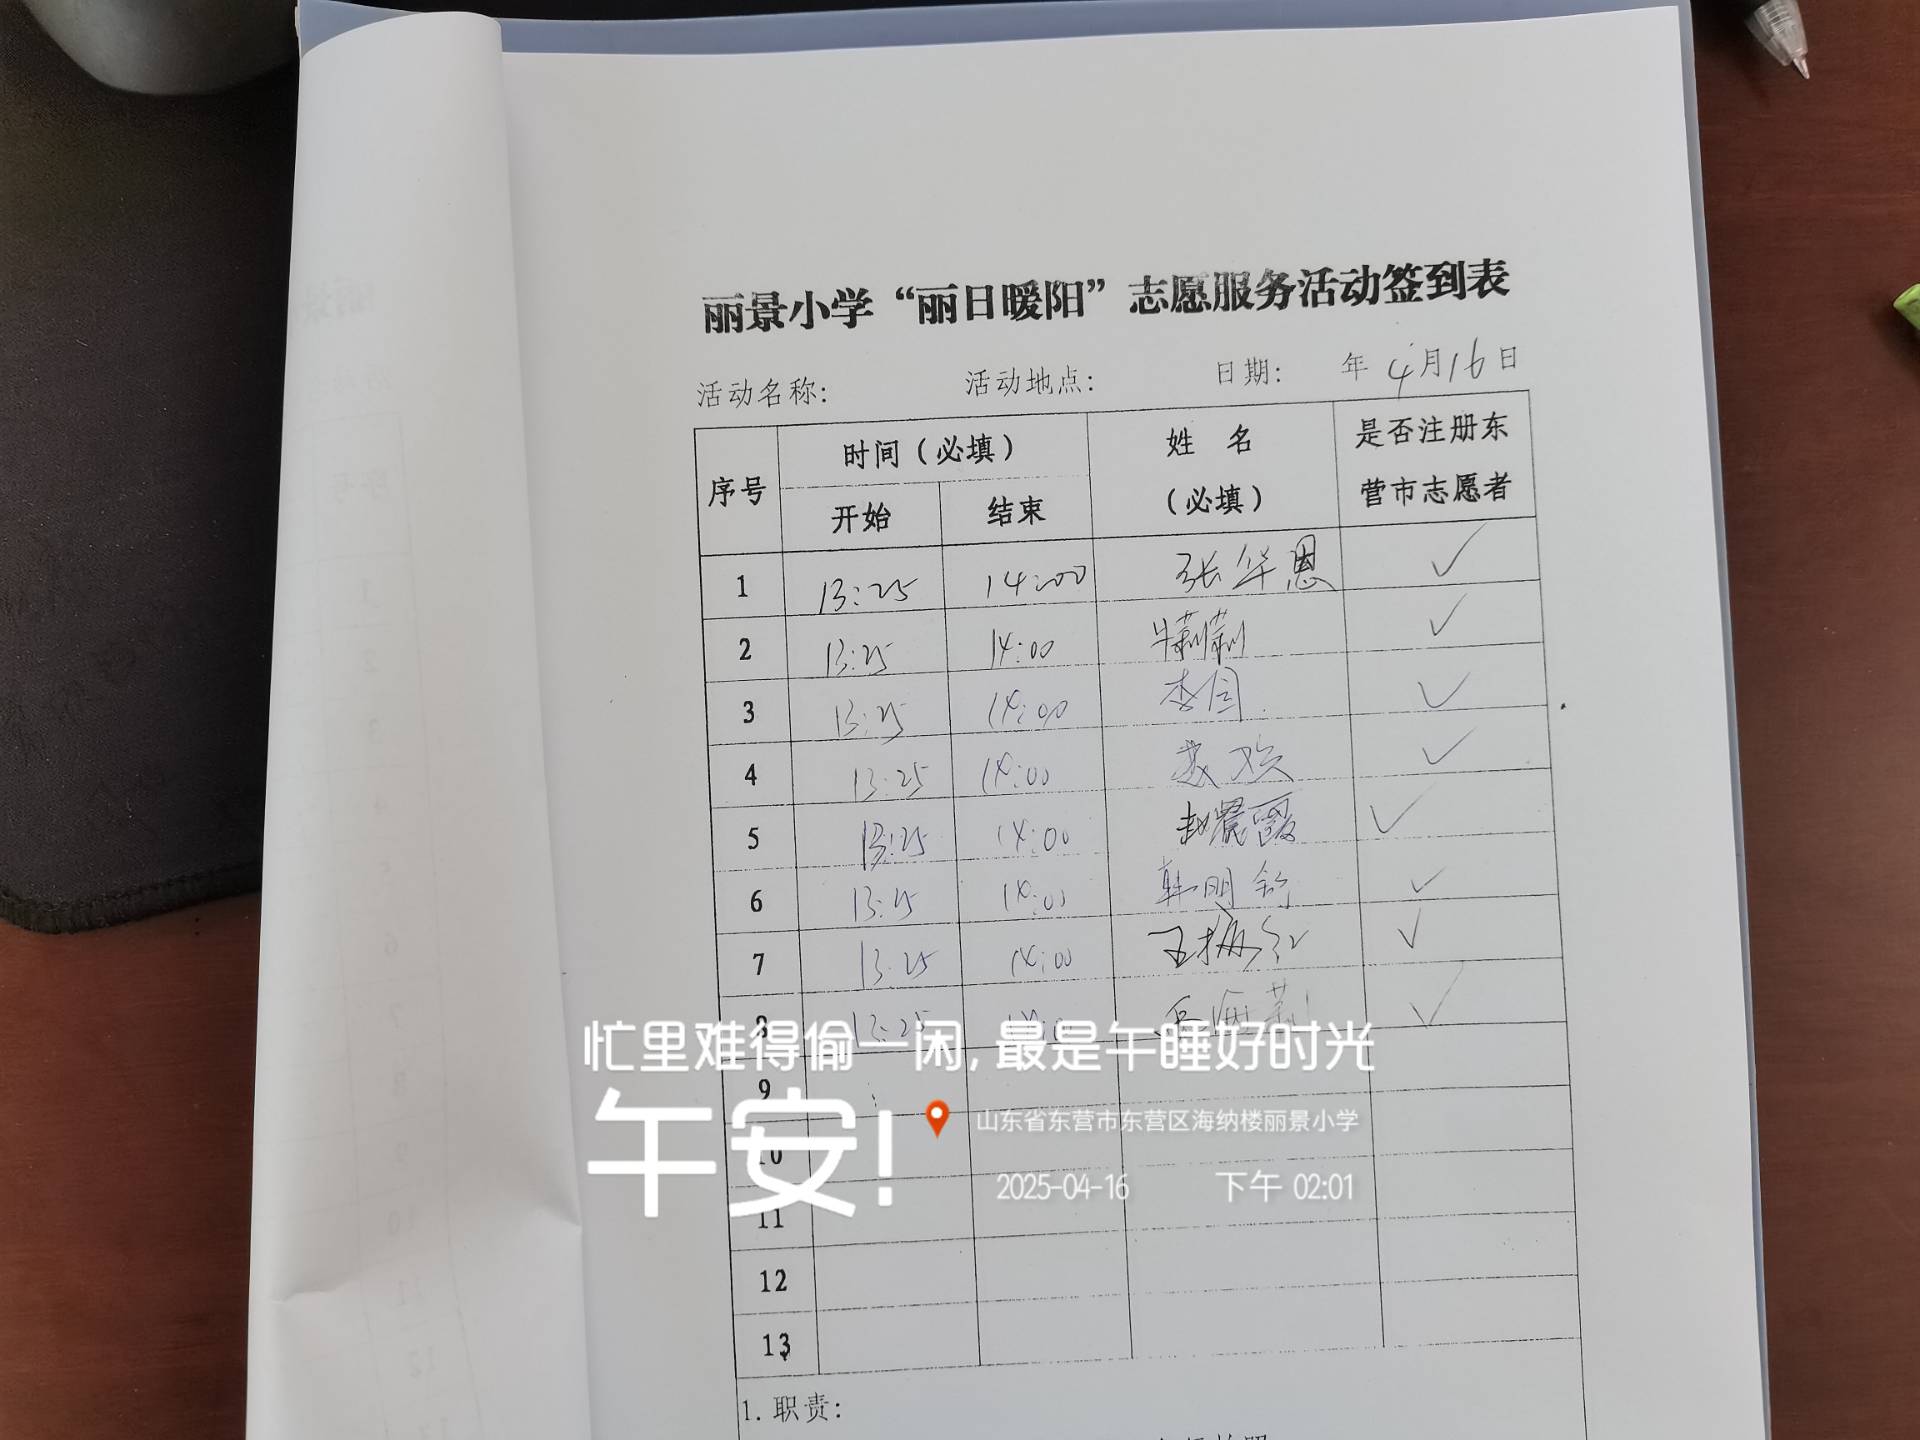 丽景小学“丽日暖阳”志愿服务活动签到表
活动名称: 活动地点: 日期: 年 4月16日
序号 时间（必填） 姓 名（必填） 是否注册东营市志愿者
开始 结束
1 13:25 14:00 张华恩 ✓
2 13:25 14:00 牛莉莉 ✓
3 13:25 14:00 李 ✓
4 13:25 14:00 ✓
5 13:25 14:00 赵晨霞 ✓
6 13:25 14:00 韩明 ✓
7 13:25 14:00 王振红 ✓
8 13:25 14:00 ✓
忙里难得偷一闲, 最是午睡好时光
9
午安!
山东省东营市东营区海纳楼丽景小学
10
2025-04-16 下午 02:01
11
12
13
1. 职责: